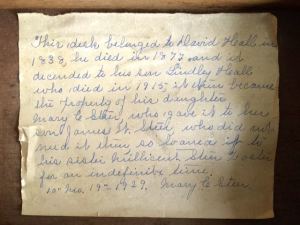 This desk belonged to David Hall in
1838, he died in 1877 and it
decended to his son Lindley Hall
who died in 1915, it then became
the property of his daughter
Mary C Steer, who gave it to her
son James H. Steer, who did not
need it then so loaned it to
his sister Millicent Steer Foster
for an indefinite time.
10th Mo. 19th 1929. Mary C Steer